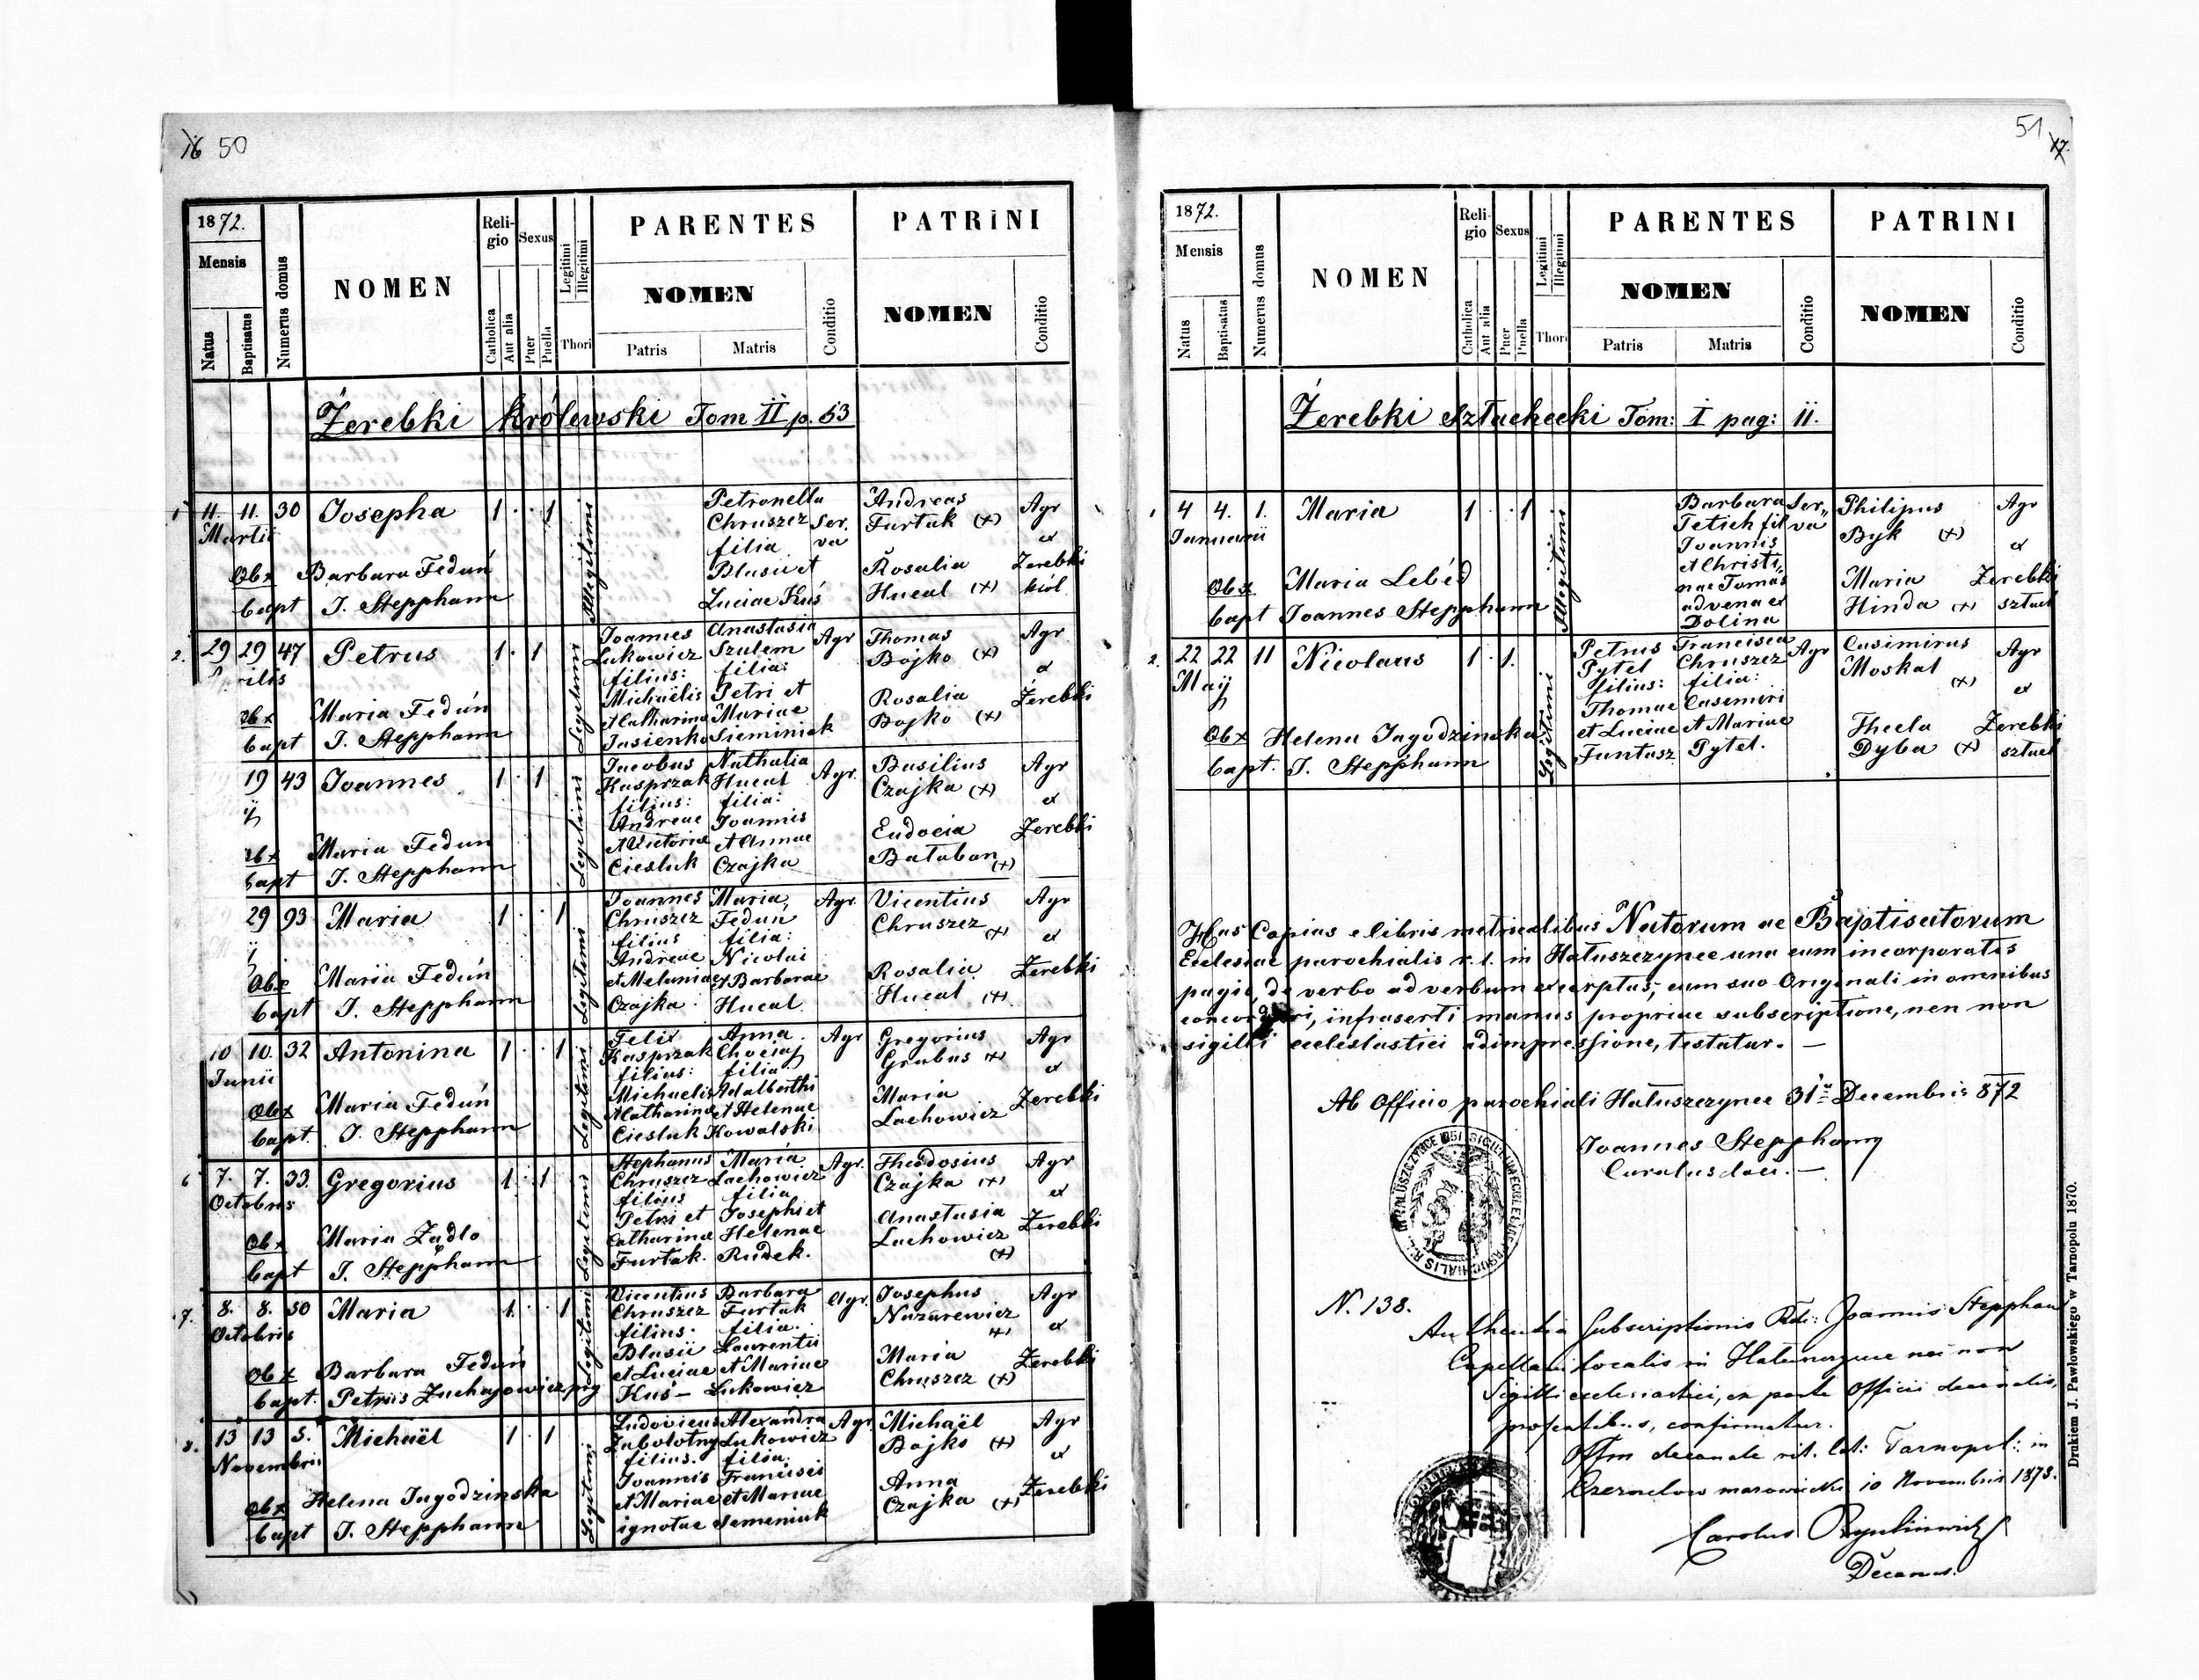 50
1872.
Mensis
Natus
Baptisatus
Numerus domus
NOMEN
Reli-
gio
Catholica
Aut alia
Sexus
Puer
Puella
Legitimi
Illegitimi
Thori
PARENTES
NOMEN
Patris
Matris
Conditio
PATRINI
NOMEN
Conditio
Żerebki królewski Tom II p. 53
1 11. 11. 30 Josepha 1 · · 1
Martii
Illegitimi
Petronella
Chruszcz
filia
Blasii et
Luciae Kuś
Ser
va
Andreas
Furtak (+)
Rosalia
Hucal (+)
Agr
ex
Zerebki
król
Obx Barbara Feduń
bapt J. Stepphann
2. 29 29 47 Petrus 1 · 1
rilis
Legitimi
Joannes
Lukowicz
filius:
Michaëlis
et Catharinae
Jasienko
Anastasia
Szulem
filia:
Petri et
Mariae
Sieminiak
Agr
Thomas
Bojko (+)
Rosalia
Bojko (+)
Agr
ex
Żerebki
obx Maria Fedún
bapt J. Stepphann
19 43 Joannes 1 · 1
Legitimi
Jacobus
Kasprzak
filius:
Andreae
et Victoriae
Ciesluk
Nathalia
Hucal
filia:
Joannis
et Annae
Czajka
Agr.
Basilius
Czajka (+)
Eudocia
Bałaban (+)
Agr
ex
Zerebki
obx Maria Fedun
bapt J. Stepphann
29 93 Maria 1 · · 1
Legitimi
Joannes
Chruszcz
filius
Andreae
et Melaniae
Czajka
Maria
Fedun
filia:
Nicolai
et Barbarae
Hucal
Agr.
Vicentius
Chruszcz (+)
Rosalia
Hucal (+)
Agr
ex
Zerebki
Obx Maria Fedún
bapt J. Stepphann
10 10. 32 Antonina 1 · · 1
Junii
Legitimi
Felix
Kasprzak
filius:
Michaelis
et Catharinae
Ciesluk
Anna
filia
Adalberthi
et Helenae
Kowalski
Agr
Gregorius
Grabas (+)
Maria
Lachowicz
Agr
ex
Zerebki
Obx Maria Feduń
bapt. J. Stepphann
6 7. 7. 33. Gregorius 1 · 1
Octobris
Legitimi
Stephanus
Chruszcz
filius
Petri et
Catharinae
Furtak.
Maria
Lachowicz
filia
Josephi et
Helenae
Rudek.
Agr.
Theodosius
Czajka (+)
Anastasia
Lachowicz
(+)
Agr
ex
Zerebki
Obx Maria Żądlo
bapt J. Stepphann
7. 8. 8. 50 Maria 1 · · 1
Octobris
Legitimi
Vicentius
Chruszcz
filius.
Blasii
et Luciae
Kuś –
Barbara
Furtak
filia.
Laurentii
et Mariae
Lukowicz
Agr.
Josephus
Nazarewicz
(+)
Maria
Chruszcz (+)
Agr
ex
Zerebki
Obx Barbara Feduń
bapt. Petrus
8. 13 13 5. Michaël 1 · 1
Novembris
Legitimi
Ludovicus
Zabolotny
filius.
Joannis
et Mariae
ignotae
Alexandra
Lukowicz
filia.
Francisci
et Mariae
Semeniuk
Agr.
Michaël
Bojko (+)
Anna
Czajka (+)
Agr
ex
Zerebki
obx Helena Jagodzinska
bapt J. Stepphann
51
1872.
Mensis
Natus
Baptisatus
Numerus domus
NOMEN
Reli-
gio
Catholica
Aut alia
Sexus
Puer
Puella
Legitimi
Illegitimi
Thori
PARENTES
NOMEN
Patris
Matris
Conditio
PATRINI
NOMEN
Conditio
Żerebki Szlachecki Tom: I pag: 11.
1 4 4. 1. Maria 1 · · 1
Januarii
Illegitimi
Barbara
Tetich fil
Joannis
et Christi„
nae Tomas
advena ex
Dolina
Ser„
va
Philipus
Byk (+)
Maria
Hinda (+)
Agr
ex
Zerebki
szlach
Obx. Maria Lebéd
bapt Joannes Stepphann
2. 22 22 11 Nicolaus 1 · 1.
Maij
Legitimi
Petrus
Pytel
filius:
Thomae
et Luciae
Funtasz
Francisca
Chruszcz
filia:
Casimiri
et Mariae
Pytel.
Agr
Casimirus
Moskal
(+)
Thecla
Dyba (+)
Agr
ex
Zerebki
szlach
Obx Helena Jagodzinska
bapt. J. Stepphann
Has Copias e libris metricalibus Natorum ac Baptisatorum
Ecclesiae parochialis r. l. in Hałuszczynce una cum incorporatis
pagis, de verbo ad verbum excerptas, cum suo Originali in omnibus
concordari, infraserti manus propriae subscriptione, nen non
sigilli ecclesiastici adimpressione, testatur. —
Ab Officio parochiali Hałuszczynce 31a Decembris 872
Joannes Stepphann
Curatus loci. —
N. 138.
Authentia subscriptionis Rdi: Joannis Stepphann
Capellani localis in Hałuszczynce nec non
Sigilli ecclesiastici, ex parte Officii decanalis,
praesentibus, confirmatur.
Offm decanale rit. lat: Tarnopol: in
Czernelow mazowiecki 10 Novembris 1873.
Carolus
Decanus.
Drukiem J. Pawłowskiego w Tarnopolu 1870.